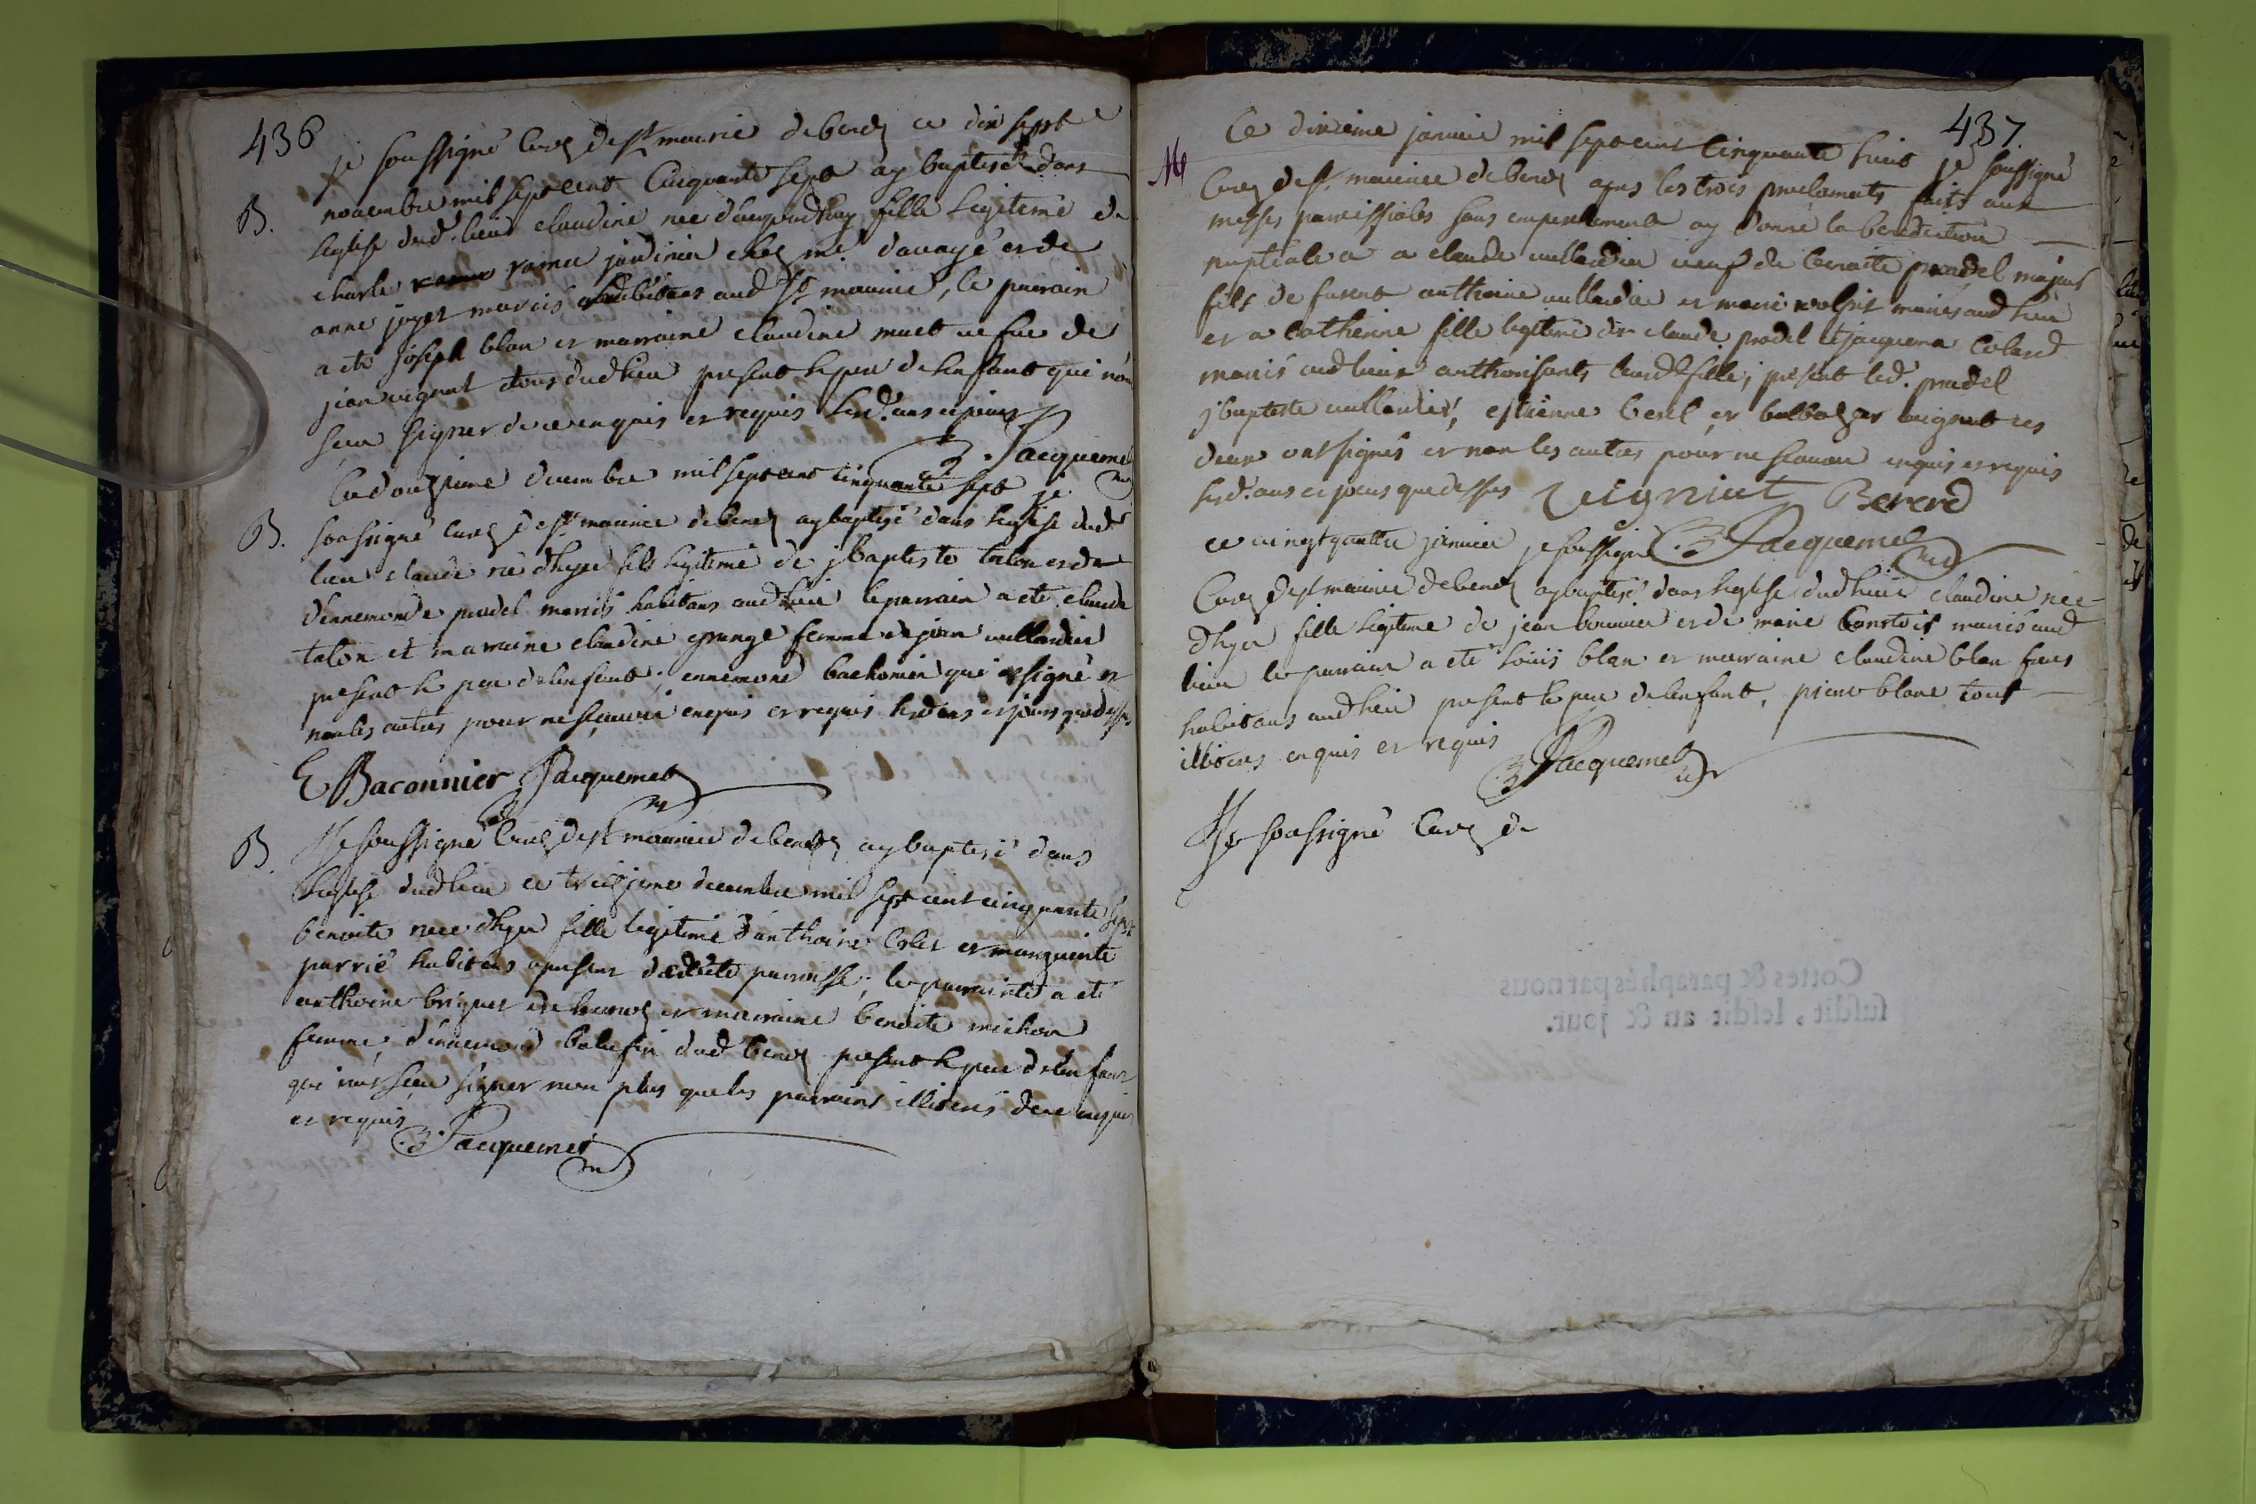 436
je soussigné Curé de st maurice de beno ce dix sept
B.
novembre mil sept cent Cinquante sept ay baptisé dans
leglise dud. lieu claudine née daujourdhuy fille legitime de
charle ramu jardinier chez mr. davayé et de
anne joyet mariés habitans aud st maurice, le parrain
a eté joseph blan et marraine claudine muet femme de
jean vignat tous dud lieu present le pere de lenfant qui n'on
sceu signer de ce enquis et requis lesd. ans et jours
Jacquemet
Ce douzieme decembre mil sept cent cinquante sept je
B.
soussigné curé de st maurice de beno ay baptisé dans leglise dud
lieu claude né dhyer fils legitime de j baptiste talon et de
dennemonde pradel mariés habitans aud lieu le parrain a eté claude
talon et marraine claudine grange femme de jean vullardier
present le pere de lenfant, ennemond baconnier qui a signé et
non les autres pour ne scavoir enquis et requis lesd ans et jours que dessus
E Baconnier Jacquemet
B.
Je soussigné Curé de st maurice de beno ay baptisé dans
leglise dud lieu ce treizieme decembre mil sept cent cinquante sept
benoite née dhyer fille legitime danthoine Colet et marguerite
parrié habitans a present dud. paroisse; le parrain a eté
anthoine briguet de beno et marraine benoite michon
femme dennemond balufin dud beno present le pere de lenfant
qui n'ont sceu signer non plus que les parrains illiterés de ce enquis
et requis
Jacquemet
437.
Ce dixieme janvier mil sept cent Cinquante huit je soussigné
M
Curé de st maurice de beno apres les trois proclamats faits aux
messes paroissiales sans empechement ay donné la benediction
nuptiale a a claude vullardier veuf de benoite pradel majeur
fils de furent anthoine vullardier et marie mariés aud lieu
et a Catherine fille legitime de claude pradel et jacquema Colard
mariés aud lieu authorisants leurd. fille; present led. pradel
j baptiste vullardier, estienne berel, et baltazar vignat ces
deux ont signés et non les autres pour ne scavoir enquis et requis
lesd. ans et jours que dessus vigniat Bererd
Jacquemet
ce vingt quattre janvier je soussigné
Curé de st maurice de beno ay baptisé dans leglise dud lieu claudine née
dhyer fille legitime de jean bouvier et de marie Comtois mariés aud
lieu le parrain a eté louis blan et marraine claudine blan
habitans aud lieu present le pere de lenfant, pierre blanc tous
illiterés enquis et requis
Jacquemet
Je soussigné Curé de
Cottes & paraphés par nous
susdit, lesdit an & jour.